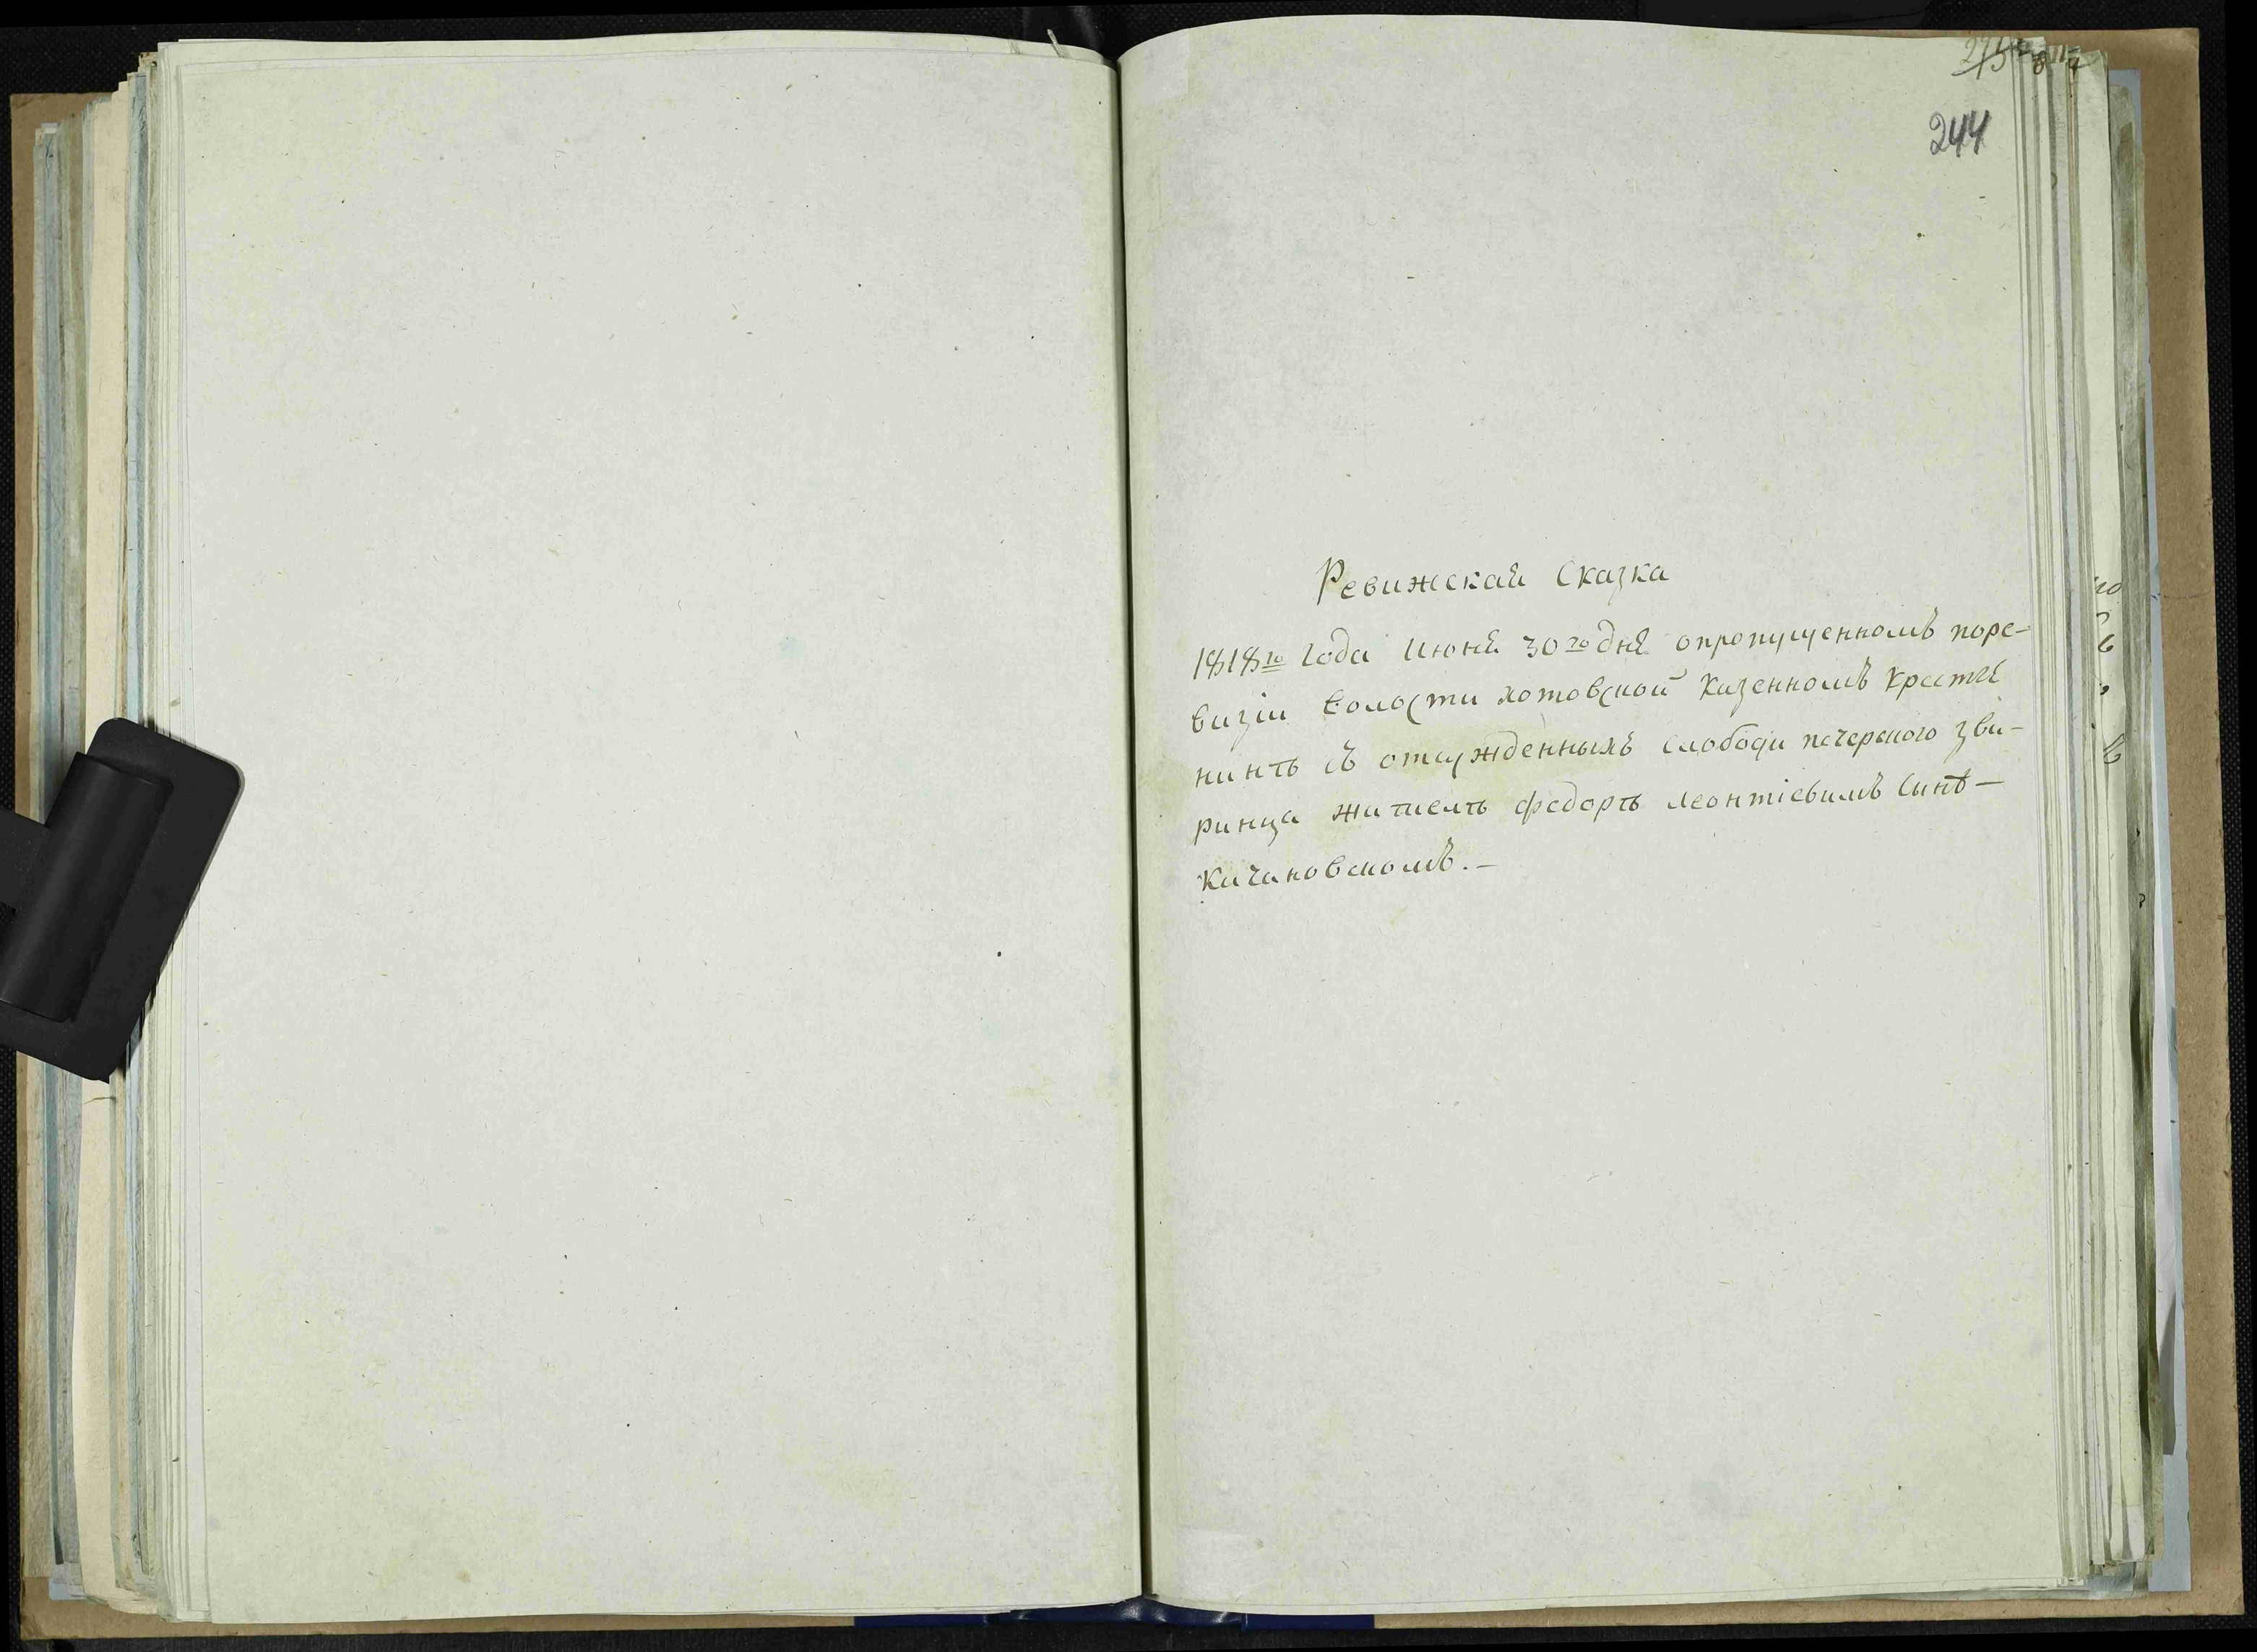 275
244
Ревижская Сказка
1818го Года Июня 30го дня опропущенномъ поре-
визiи волости хотовской Казенномъ Крестя
нинѣ съ отсужденныхъ слободи печерского зви-
ринца жителѣ федорѣ леонтiевимъ Синѣ-
Качановскомъ.-